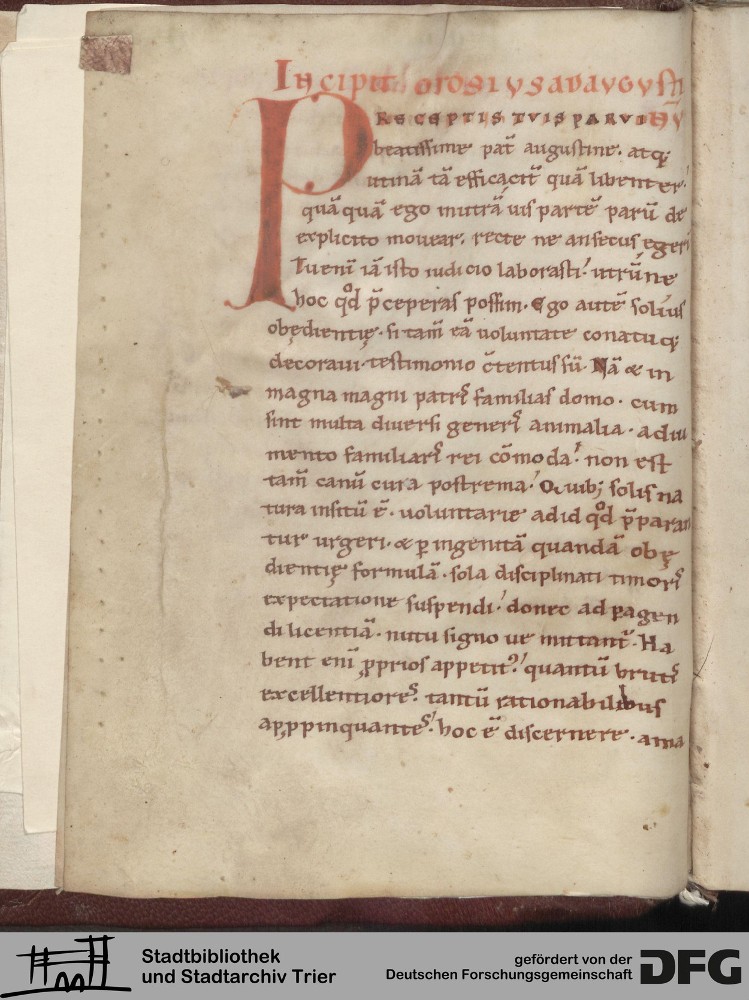 Incipit orosius ad augusti
nū
PRECEPTIS TVIS PARVI
beatissime pat̄ augustine. atq;
utinā tā efficacit̄ quā libenter.
quā quā ego inutrā uis partē parū de
explicito mouear. recte ne an secus egeri
Tu eni iā isto iudicio laborasti. utrū ne
hoc qd p̄ceperas possim. Ego autē solius
obędientię. si tam̄ eā uoluntate conatuq;
decoraui. testimonio c̄tentus sū. Nā & in
magna magni patris familias domo. cum
sint multa diuersi generis animalia. adiu
mento familiaris rei cōmoda. non est
tam̄ canū cura postrema. Quib; solis na
tura insitū ē. uoluntarie ad id qd p̄paran
tur urgeri. & p ingenitā quandā obę
dientię formulā. sola disciplinati timoris
expectatione suspendi. donec ad pagen
di licentiā. nutu signo ue mittant̄. Ha
bent eni p̄prios appetit⁹. quantū brutis
excellentiores. tantū rationabilibus
app̄pinquantes. hoc ē discernere. ama
Stadtbibliothek
und Stadtarchiv Trier
gefördert von der
Deutschen Forschungsgemeinschaft
DFG